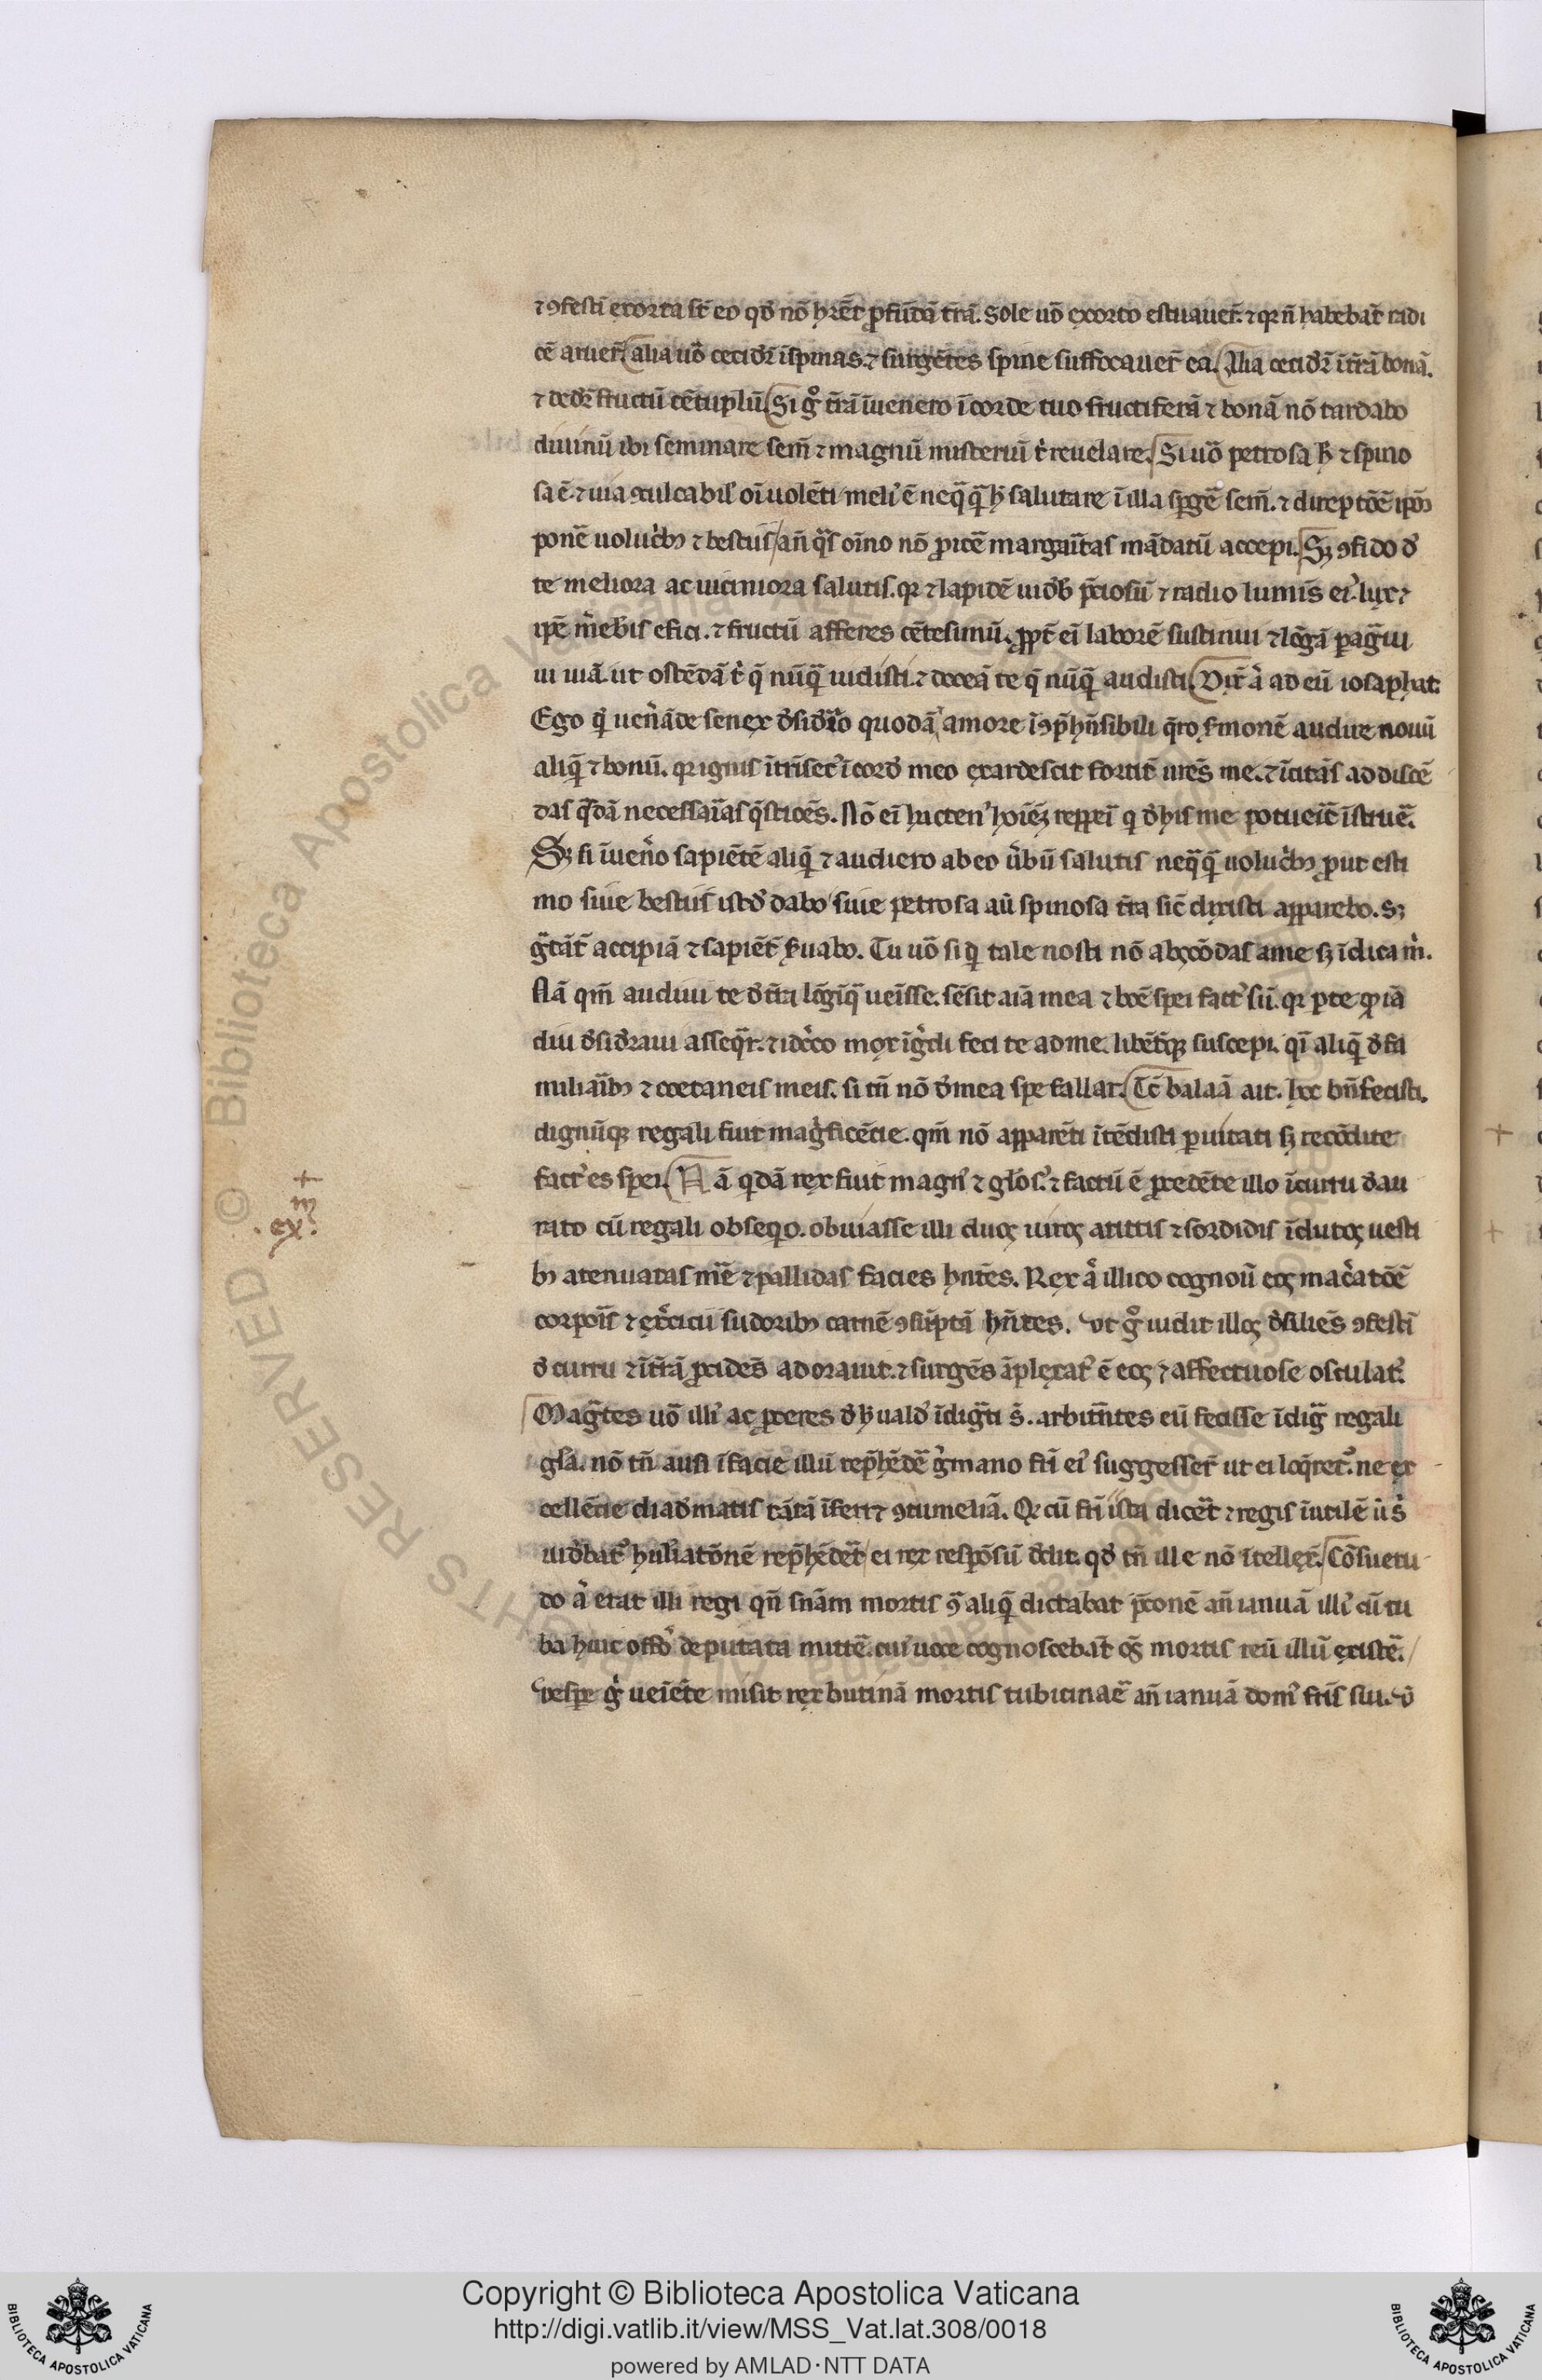 ⁊ ꝯfestī exorta st̄ eo qd̓ nō hr̄et ꝓfūdā t̄rā. Sole uō exorto estuauer̄. ⁊ qr n̄ habebāt radi
cē aruer̄. alia uō cecider̄ ī spinas. ⁊ surgētes spine suffocauer̄ ea. Alia cecider̄ ī t̄rā bonā.
⁊ deder̄ fructū cētuplū. Si gͦ t̄rā īuenero ī corde tuo fructiferā ⁊ bonā nō tardabo
diuinū ibi seminare sem̄ ⁊ magnū misteriū t̓ reuelare. Si uō petrosa ħ ⁊ spino
sa ē. ⁊ uia ꝯculcabil̓ oī uolēti meli᾽ ē neqq̄ꝫ ħ salutare ī illa sp̄gē sem̄. ⁊ direptōē ip̄m
ponē uolucͥbꝫ ⁊ bestiis an̄ q̄s oīno nō ꝓicē margaritas mādatū accepi. Sꝫ ꝯfido d̓
te meliora ac uiciniora salutis. qr ⁊ lapidē uideb̓ p̄ciosū ⁊ radio lumīs ei᾽ lux ⁊
ip̄e m̓eb̓is effici. ⁊ fructū afferes cētesimū. ꝓpt̄ eī laborē sustinui ⁊ lōgā ꝑagͣui
ui uiā. ut ostēdā t̓ q̄ nūqͣ uidisti. ⁊ doceā te q̄ nūqͣ audisti. Dix̄ ā ad eū iosaphat.
Ego qͥ uen̄āde senex d̓sid̓io quodā amore īꝯp̄hn̄sibili q̄ro s̓monē audire nouū
aliqͣ ⁊ bonū. qr ignis ītrīsec᾽ ī cord̓ meo exardescit fortit̄ urēs me. ⁊ īcitās ad discē
das q̄dā necessarias q̄stiōēs. Nō eī hacten᾽ hoīēꝫ repperi q d̓ his me potuerit īstruē.
Sꝫ si īuen̓o sapiētē aliqͣ ⁊ audiero ab eo ūbū salutis neqq̄ꝫ uolucͥbꝫ ꝓut esti
mo siue bestiis istd̓ dabo siue petrosa aū spinosa t̄ra sic̄ dixisti apparebo. sꝫ
gͣtāt̄ accipiā ⁊ sapiēt̄ s̓uabo. Tu uō si qͥ tale nosti nō abscōdas a me sꝫ īdica m̓.
Nā qm̄ audiui te d̓ t̄ra lōgīqͣ ueīsse. sēsit aīa mea ⁊ boē spei fact᾽ sū. qr ꝑ te qͥ iā
diu d̓sid̓raui asseqͥr. ⁊ id̓co mox īgͥdi feci te ad me. libēt̓qꝫ suscepi. qͥ aliqͣ d̓ fa
miliaribꝫ ⁊ coetaneis meis. si tn̄ nō d̓ mea spe fallar. Tc̄ balaā ait. hoc bn̄ fecisti.
dignūqꝫ regali fuit magͥficēcie. qm̄ nō apparēti ītēdisti ꝑuitati sꝫ recōdite
fact᾽ es spei. Nā qͥdā rex fuit magn᾽ ⁊ glos᾽. ⁊ factū ē ꝓcedēte illo ī curru d̓au
rato cū regali obseqͥo. obuiasse illi duoꝫ uiros atritis ⁊ sordidis īdutos uesti
bꝫ atenuatas m̄ē ⁊ pallidas facies hn̄tes. Rex ā illico cognou̓ eos mac̓atōē
corpoīs ⁊ ex̓cicii sudoribꝫ carnē ꝯsūptā hn̄tes. ut gͦ uidit illos d̓siliēs ꝯfestī
d̓ curru ⁊ ī t̄rā ꝓcidēs adorauit. ⁊ surgēs āplexat᾽ ē eos ⁊ affectuose osculat᾽.
Magͣtes uō illi᾽ ac ꝓceres d̓ ħ uald̓ īdigͣti s̄. arbitn̄tes eū fecisse īdigͣ regali
gl̄a. nō tn̄ ausi ī facie illū rep̄hēdē gͥmano fr̄i ei᾽ suggesser̄ ut ei loqͥret᾽. ne ex
cellēcie diad̓matis tātā īferr̄ ꝯtumeliā. Q̄ cū fr̄i ista dicēt ⁊ regis īutilē ū s̓
uid̓bat᾽ hūl̓iatōnē rep̄hēdēt ei rex respōsū dedit. qd̓ tn̄ ille nō ītellex̄. Cōsuetu
do ā erat illi regi qn̄ sn̄iam mortis ꝯͣ aliqͣ dictabat p̄conē an̄ ianuā illi᾽ cū tu
ba huic offō deputata mittē. cui᾽ uoce cognoscebāt oēs mortis reū illū existē.
vespe gͦ ueiēte misit rex butinā mortis tubicinaē an̄ ianuā dom᾽ fr̄is sui. ut
+
m̄
. ex᾽.
Copyright © Biblioteca Apostolica Vaticana
http://digi.vatlib.it/view/MSS_Vat.lat.308/0018
powered by AMLAD·NTT DATA